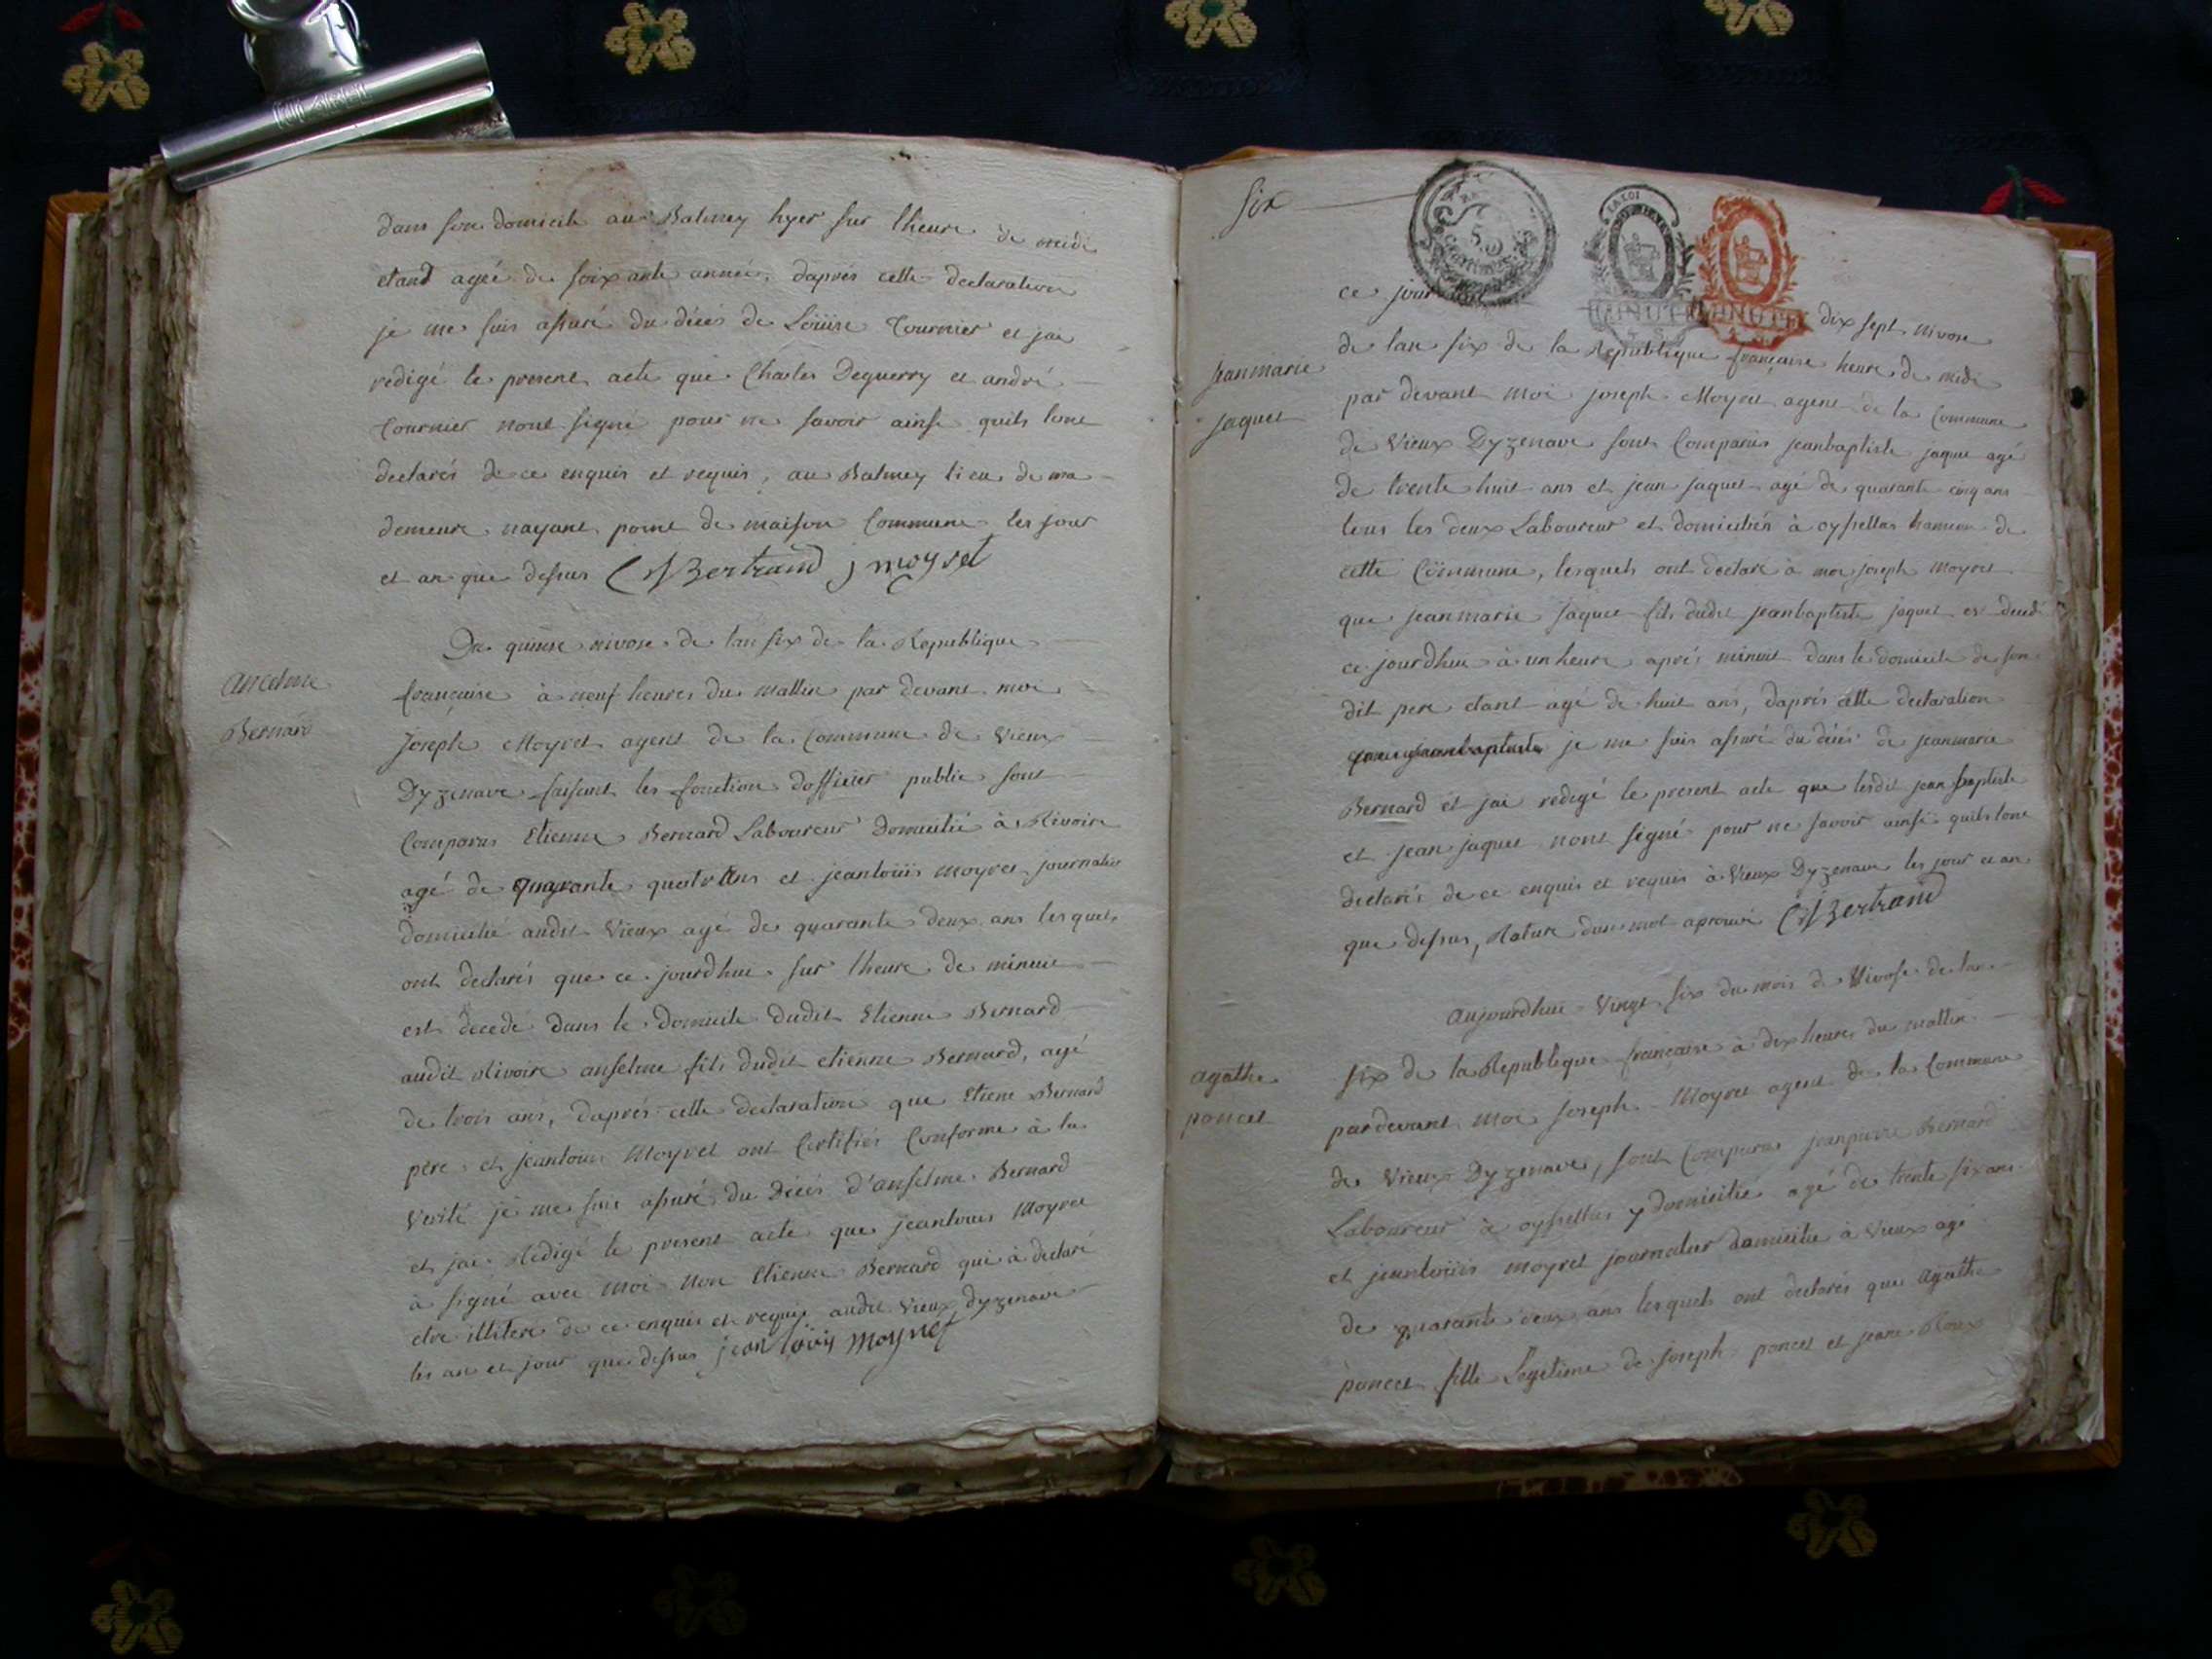 dans son domicile au Balmey hyer sur lheure de midi
etand ageé de soixante année, daprès cette declaration
je me suis assuré du décé de Loüise Tournier et jai
redigé le present acte que Charles Deguerry et andré
Tournier nont signé pour ne savoir ainsi quils lont
declarés de ce enquis et requis, au Balmey lieu de ma
demeure nayant point de maison Commune les jour
et an que dessus Bertrand j moyret
Du quinse nivose de lan six de la Republique
Ancelme
Bernard
française à neuf heures du mattin par devant moi
Joseph Moyret agent de la Commune de Vieux
Dyzenave faisant les fonction dofficier public sont
Comparus Etienne Bernard Laboureur Domicilié à Rivoire
agé de quarante quatre ans et jeanloüis moyret journalier
domicilié audit Vieux agé de quarante deux ans lesquels
ont declarés que ce jourdhui sur lheure de minuit
est decedé dans le domicile dudit Etienne Bernard
audit Rivoire anselme fils dudit etienne Bernard, agé
de trois ans, daprés cette declaration que Etiene Bernard
pere et jeanlouis Moyret ont Certifiés Conforme à la
Verité je me suis assuré du Décés d'anselme Bernard
et jai Rédigé le present acte que jeanlouis Moyret
à signé avec moi non Etienne Bernard qui à declaré
etre illitere de ce enquis et requis audit Vieux dyzenave
les an et jour que dessus jean loüis moyret
six
5
centimes
LA LOI
MINUTE
MINUTE
ce jourdhui dix sept nivose
jeanmarie
jaquet
de lan six de la Republique française heure de midi
par devant moi joseph Moyret agent de la Commune
de Vieux Dyzenave sont Comparus jeanbaptiste jaquet agé
de trente huit ans et jean jaquet agé de quarante cinq ans
tous les deux Laboureur et domiciliés à oyssellas hameau de
cette Commune, lesquels ont declaré à moi joseph moyret
que jeanmarie jaquet fils dudit jeanbaptiste jaquet est decedé
ce jourdhui à un heure aprés minuit dans le domicile de son
dit pere etant agé de huit ans, daprés cette declaration
je me suis assuré du décés de jeanmarie
Bernard et jai redigé le present acte que lesdit jean baptiste
et jean jaquet nont signé pour ne savoir ainsi quils lont
declarés de ce enquis et requis à Vieux Dyzenave les jour et an
que dessus, Rature dun mot aprouvé Bertrand
aujourdhui Vingt six du mois de Nivose de lan
agathe
poncet
six de la Republique francaise à dix heures du mattin
pardevant moi Joseph Moyret agent de la Commune
de Vieux Dyzenave, sont Comparus jeanpierre Bernard
Laboureur à oyssellas y domicilié agé de trente six ans
et jeanloüis moyret journalier domicilié à Vieux agé
de quarante deux ans lesquels ont declarés que Agathe
poncet fille Legitime de joseph poncet et jeane Roux